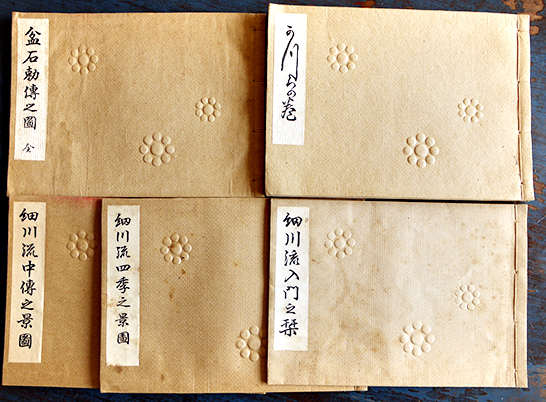 盆石勅傳之圖 全
細川流中傳之景圖
細川流四季之景圖
細川流入門之栞